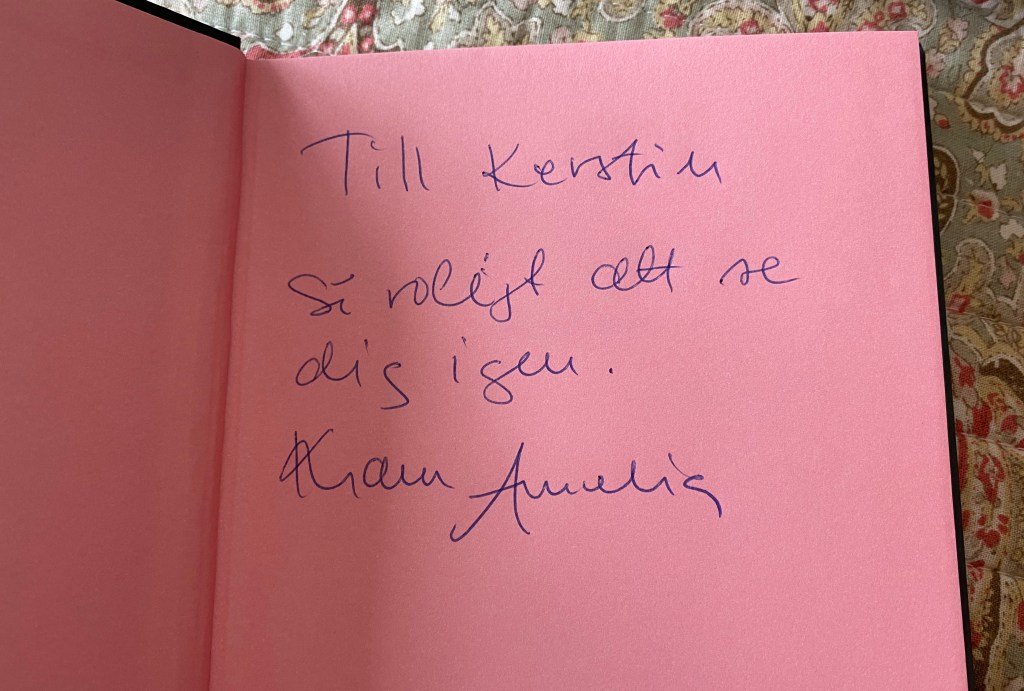 Till Kerstin
Så roligt att se
dig igen.
Kram Amelia